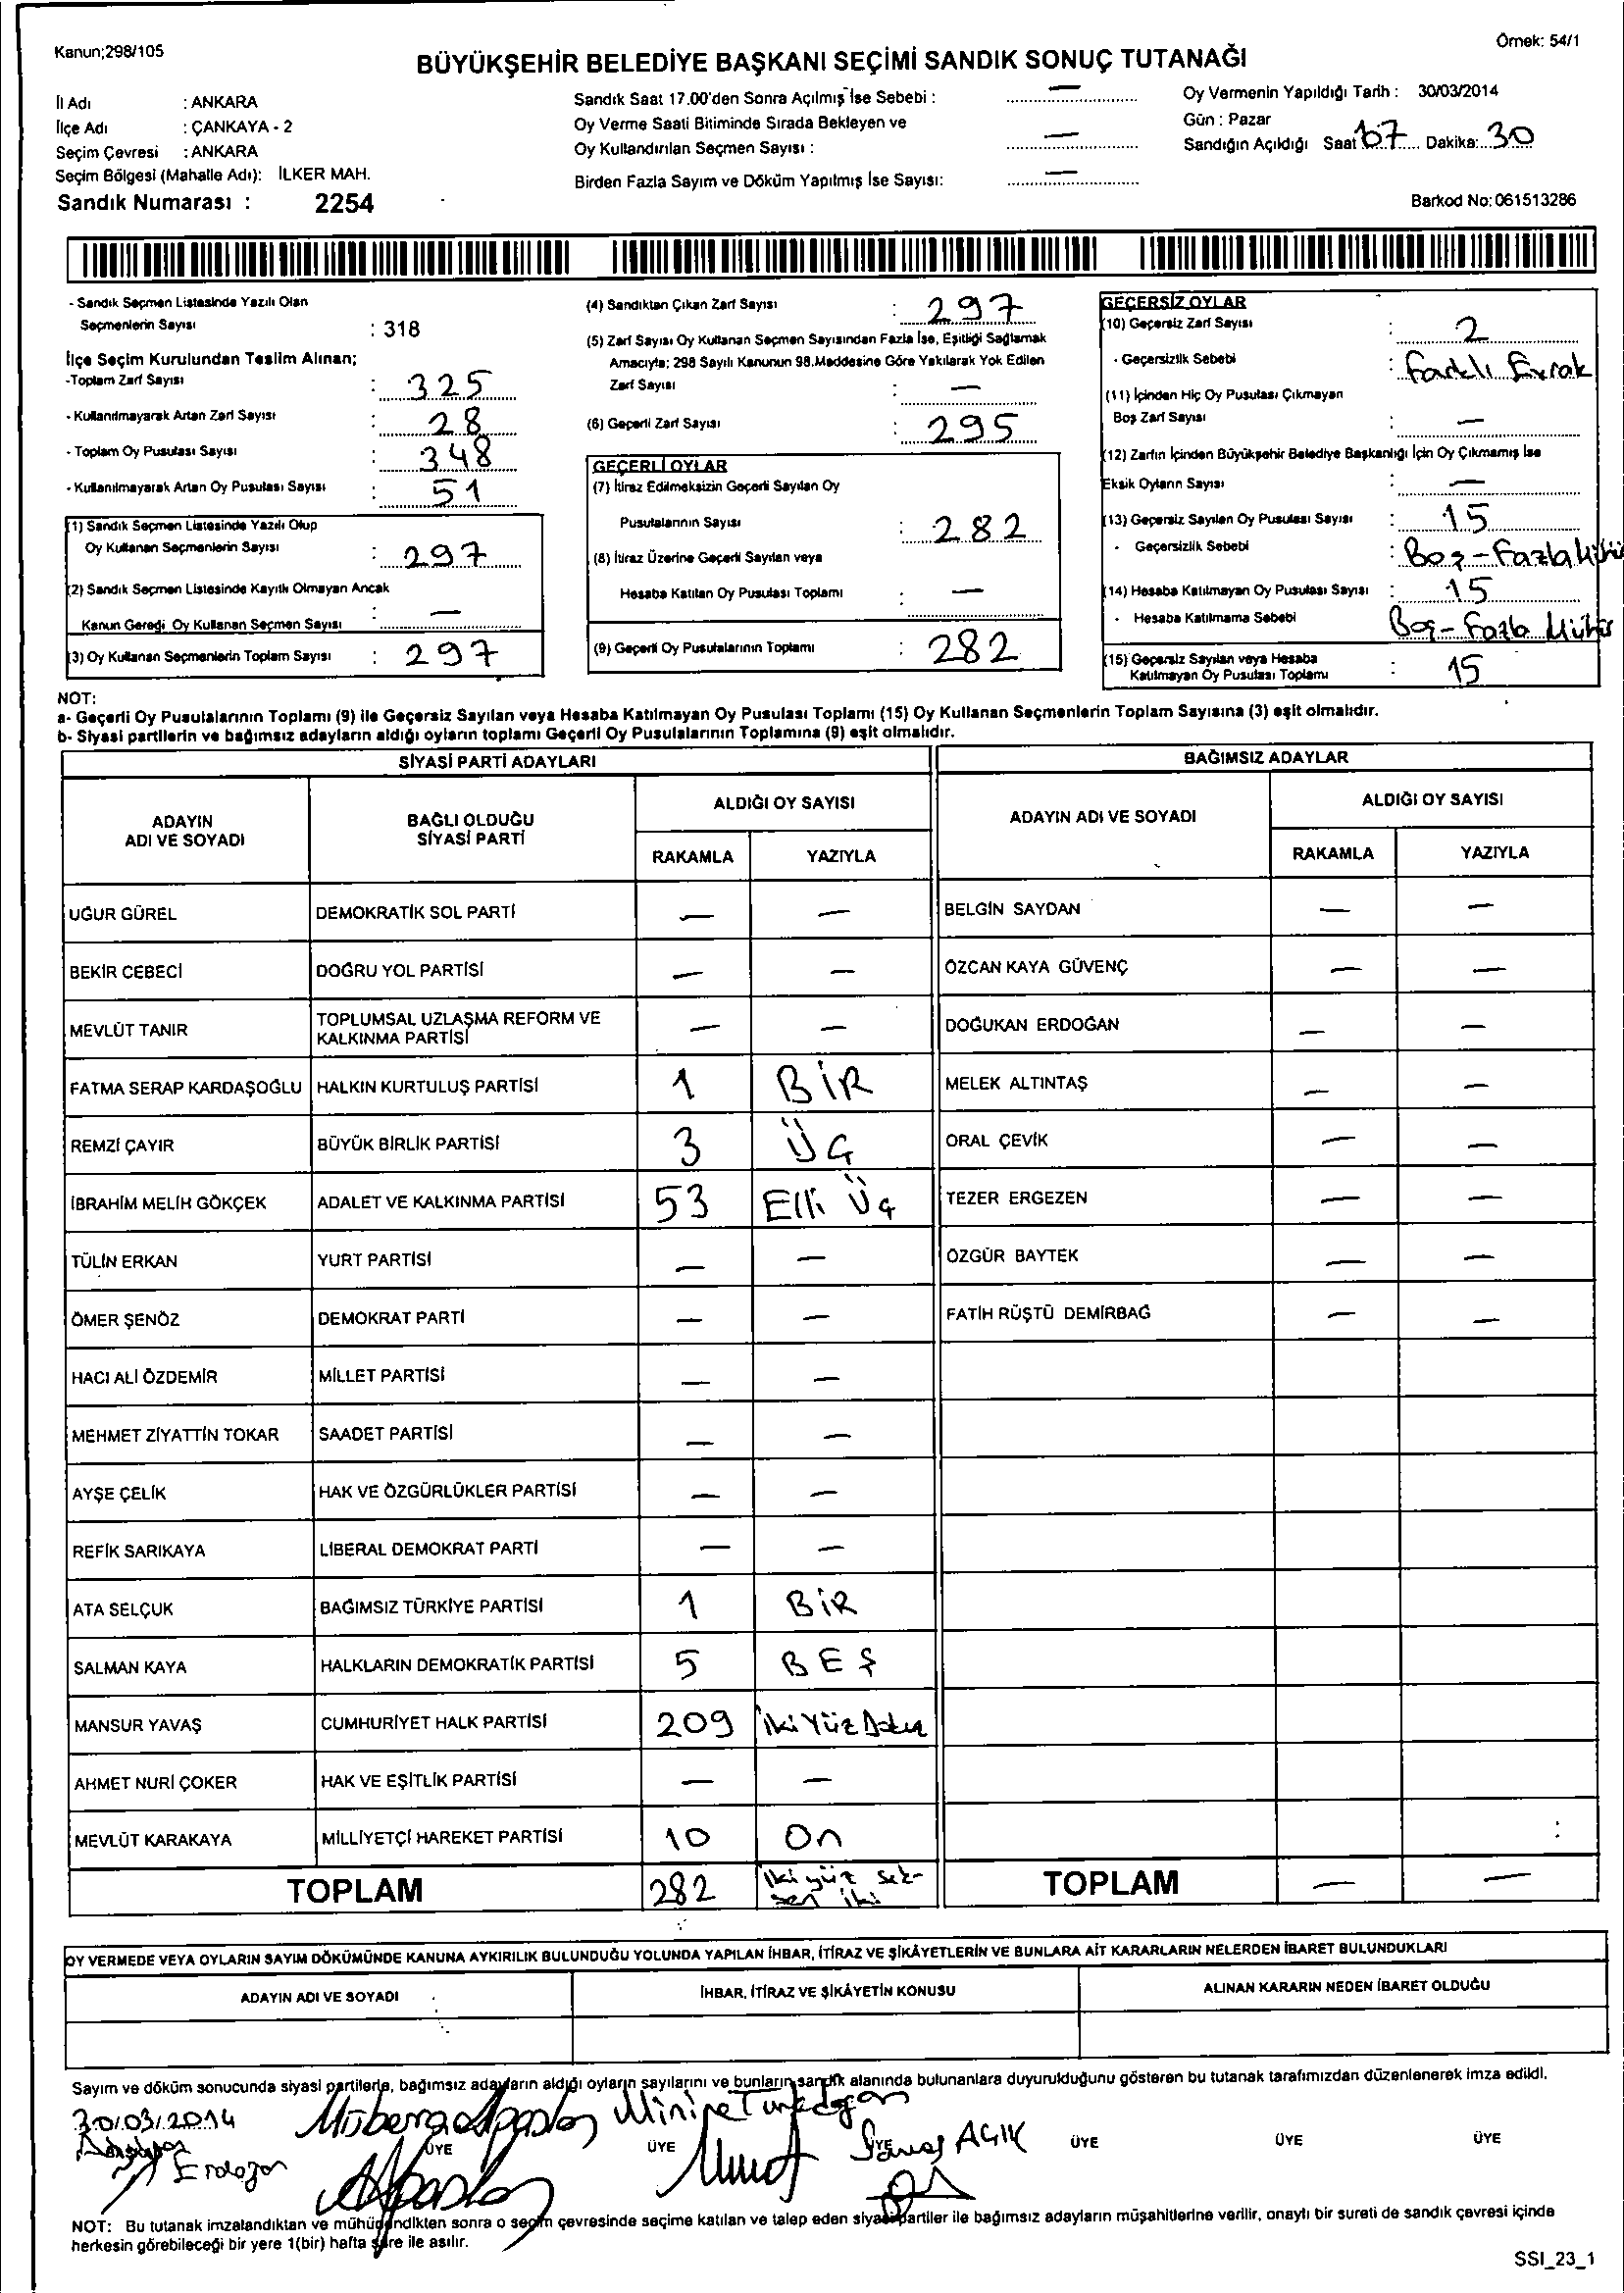 Kanun;298/105
Örnek: 54/1
BÜYÜKŞEHİR BELEDİYE BAŞKANI SEÇİMİ SANDIK SONUÇ TUTANAĞI
İl Adı : ANKARA
İlçe Adı : ÇANKAYA - 2
Seçim Çevresi : ANKARA
Seçim Bölgesi (Mahalle Adı): İLKER MAH.
Sandık Numarası : 2254
Sandık Saat 17.00'den Sonra Açılmış İse Sebebi : —
Oy Verme Saati Bitiminde Sırada Bekleyen ve
Oy Kullandırılan Seçmen Sayısı : —
Birden Fazla Sayım ve Döküm Yapılmış İse Sayısı: —
Oy Vermenin Yapıldığı Tarih : 30/03/2014
Gün : Pazar
Sandığın Açıldığı Saat 07 Dakika: 30
Barkod No: 061513286
- Sandık Seçmen Listesinde Yazılı Olan
Seçmenlerin Sayısı : 318
İlçe Seçim Kurulundan Teslim Alınan;
-Toplam Zarf Sayısı : 325
- Kullanılmayarak Artan Zarf Sayısı : 28
- Toplam Oy Pusulası Sayısı : 348
- Kullanılmayarak Artan Oy Pusulası Sayısı : 51
(1) Sandık Seçmen Listesinde Yazılı Olup
Oy Kullanan Seçmenlerin Sayısı : 297
(2) Sandık Seçmen Listesinde Kayıtlı Olmayan Ancak
Kanun Gereği Oy Kullanan Seçmen Sayısı : —
(3) Oy Kullanan Seçmenlerin Toplam Sayısı : 297
(4) Sandıktan Çıkan Zarf Sayısı : 297
(5) Zarf Sayısı Oy Kullanan Seçmen Sayısından Fazla İse, Eşitliği Sağlamak
Amacıyla; 298 Sayılı Kanunun 98.Maddesine Göre Yakılarak Yok Edilen
Zarf Sayısı : —
(6) Geçerli Zarf Sayısı : 295
GEÇERLİ OYLAR
(7) İtiraz Edilmeksizin Geçerli Sayılan Oy
Pusulalarının Sayısı : 282
(8) İtiraz Üzerine Geçerli Sayılan veya
Hesaba Katılan Oy Pusulası Toplamı : —
(9) Geçerli Oy Pusulalarının Toplamı : 282
GEÇERSİZ OYLAR
(10) Geçersiz Zarf Sayısı : 2
- Geçersizlik Sebebi : Farklı Evrak
(11) İçinden Hiç Oy Pusulası Çıkmayan
Boş Zarf Sayısı : —
(12) Zarfın İçinden Büyükşehir Belediye Başkanlığı İçin Oy Çıkmamış İse
Eksik Oyların Sayısı : —
(13) Geçersiz Sayılan Oy Pusulası Sayısı : 15
- Geçersizlik Sebebi : Boş - Fazla Mühür
(14) Hesaba Katılmayan Oy Pusulası Sayısı : 15
- Hesaba Katılmama Sebebi Boş - Fazla Mühür
(15) Geçersiz Sayılan veya Hesaba
Katılmayan Oy Pusulası Toplamı : 15
NOT:
a- Geçerli Oy Pusulalarının Toplamı (9) ile Geçersiz Sayılan veya Hesaba Katılmayan Oy Pusulası Toplamı (15) Oy Kullanan Seçmenlerin Toplam Sayısına (3) eşit olmalıdır.
b- Siyasi partilerin ve bağımsız adayların aldığı oyların toplamı Geçerli Oy Pusulalarının Toplamına (9) eşit olmalıdır.
SİYASİ PARTİ ADAYLARI
ADAYIN ADI VE SOYADI BAĞLI OLDUĞU SİYASİ PARTİ ALDIĞI OY SAYISI
RAKAMLA YAZIYLA
UĞUR GÜREL DEMOKRATİK SOL PARTİ — —
BEKİR CEBECİ DOĞRU YOL PARTİSİ — —
MEVLÜT TANIR TOPLUMSAL UZLAŞMA REFORM VE KALKINMA PARTİSİ — —
FATMA SERAP KARDAŞOĞLU HALKIN KURTULUŞ PARTİSİ 1 BİR
REMZİ ÇAYIR BÜYÜK BİRLİK PARTİSİ 3 ÜÇ
İBRAHİM MELİH GÖKÇEK ADALET VE KALKINMA PARTİSİ 53 Elli Üç
TÜLİN ERKAN YURT PARTİSİ — —
ÖMER ŞENÖZ DEMOKRAT PARTİ — —
HACI ALİ ÖZDEMİR MİLLET PARTİSİ — —
MEHMET ZİYATTİN TOKAR SAADET PARTİSİ — —
AYŞE ÇELİK HAK VE ÖZGÜRLÜKLER PARTİSİ — —
REFİK SARIKAYA LİBERAL DEMOKRAT PARTİ — —
ATA SELÇUK BAĞIMSIZ TÜRKİYE PARTİSİ 1 BİR
SALMAN KAYA HALKLARIN DEMOKRATİK PARTİSİ 5 BEŞ
MANSUR YAVAŞ CUMHURİYET HALK PARTİSİ 209 İki Yüz Dokuz
AHMET NURİ ÇOKER HAK VE EŞİTLİK PARTİSİ — —
MEVLÜT KARAKAYA MİLLİYETÇİ HAREKET PARTİSİ 10 On
TOPLAM 282 İki yüz sek-
sen iki
BAĞIMSIZ ADAYLAR
ADAYIN ADI VE SOYADI ALDIĞI OY SAYISI
RAKAMLA YAZIYLA
BELGİN SAYDAN — —
ÖZCAN KAYA GÜVENÇ — —
DOĞUKAN ERDOĞAN — —
MELEK ALTINTAŞ — —
ORAL ÇEVİK — —
TEZER ERGEZEN — —
ÖZGÜR BAYTEK — —
FATİH RÜŞTÜ DEMİRBAĞ — —
TOPLAM — —
OY VERMEDE VEYA OYLARIN SAYIM DÖKÜMÜNDE KANUNA AYKIRILIK BULUNDUĞU YOLUNDA YAPILAN İHBAR, İTİRAZ VE ŞİKÂYETLERİN VE BUNLARA AİT KARARLARIN NELERDEN İBARET BULUNDUKLARI
ADAYIN ADI VE SOYADI İHBAR, İTİRAZ VE ŞİKÂYETİN KONUSU ALINAN KARARIN NEDEN İBARET OLDUĞU
Sayım ve döküm sonucunda siyasi partilerle, bağımsız adayların aldığı oyların sayılarını ve bunların sandık alanında bulunanlara duyurulduğunu gösteren bu tutanak tarafımızdan düzenlenerek imza edildi.
30/03/2014
Erdoğan
Savaş AÇIK
ÜYE ÜYE ÜYE ÜYE ÜYE ÜYE
NOT: Bu tutanak imzalandıktan ve mühürlendikten sonra o seçim çevresinde seçime katılan ve talep eden siyasi partiler ile bağımsız adayların müşahitlerine verilir, onaylı bir sureti de sandık çevresi içinde
herkesin görebileceği bir yere 1(bir) hafta süre ile asılır.
SSI_23_1